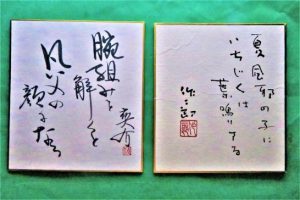 夏風邪の子に
いちじくは
葉鳴りする
腕組みを
解くと
凡父の
顔になる